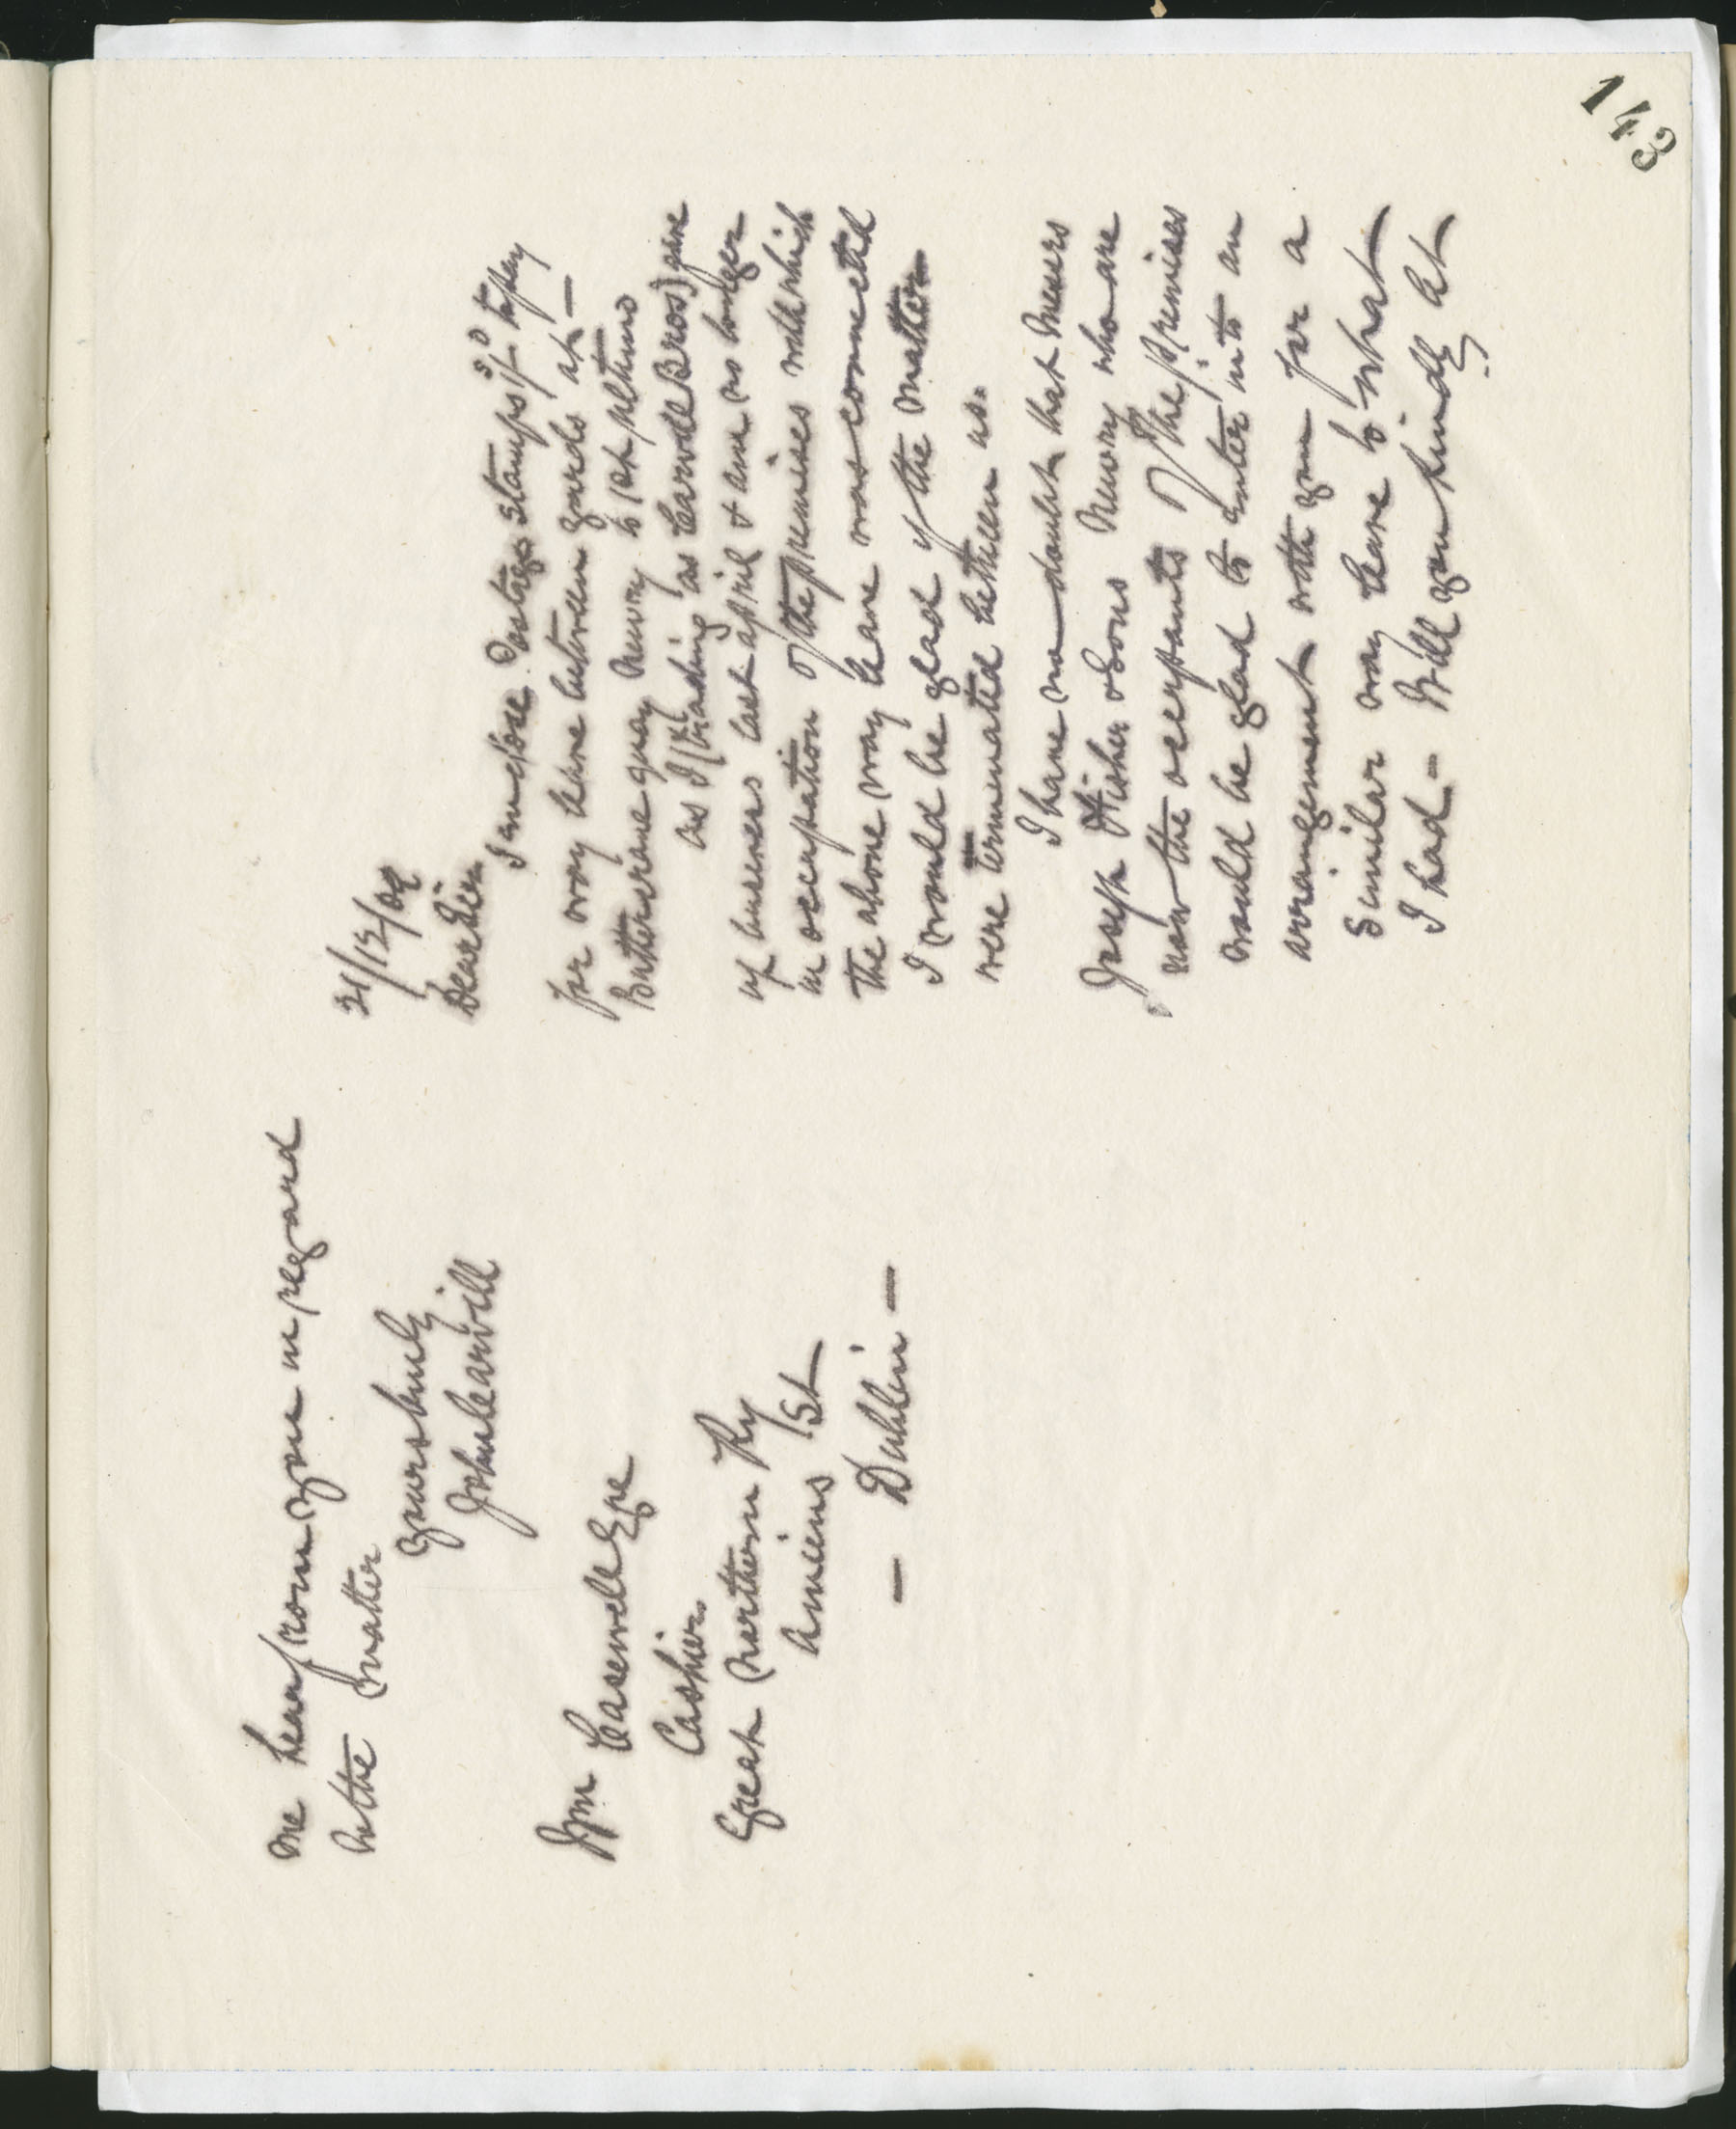 143
21/12/02
Dear Sir
I enclose Postage Stamps 1/- to pay
for way leave between goods at
Buttercrane quay Newry to 1st ultimo
as I (trading as Carvill Bros) gave
up business last april & am no longer
in occupation of the premises with which
the above way leave was connected
I would be glad if the matter
were terminated between us.
I have no doubt that Messrs
Joseph Fisher & Sons Newry who are
now the occupants of the premises
would be glad to enter into an
arrangement with you for a
similar way leave to what
I had - Will you kindly let
me hear from you in regard
to the matter
yours truly
John Carvill
Wm Casewell Eqre
Cashier
Great Northern Ry
Amiens St
- Dublin -